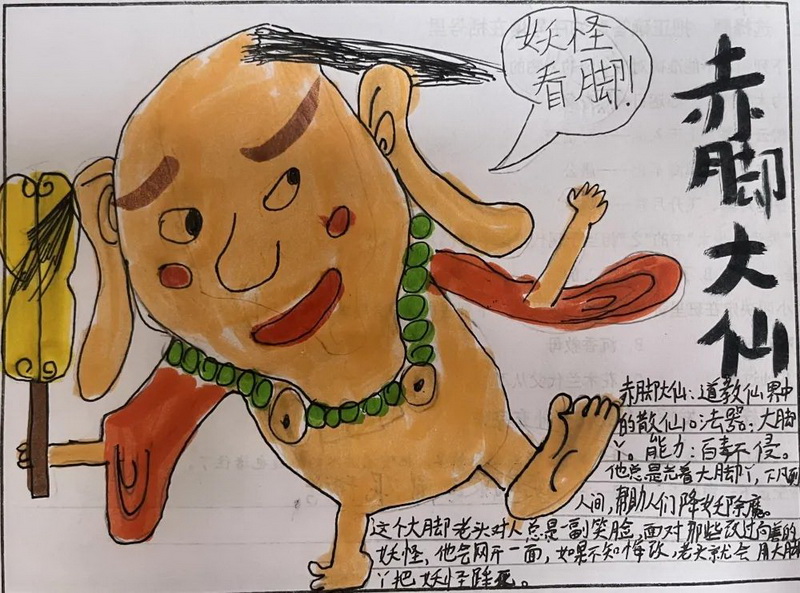 妖怪
看脚!
赤脚大仙
赤脚大仙:道教仙界中
的散仙。法器:大脚
丫。能力:百毒不侵。
他总是光着大脚丫,下凡到
人间,帮助人们降妖除魔。
这个大脚老头对人总是一副笑脸,面对那些改过向善的
妖怪,他会网开一面,如果不知悔改,老头就会用大脚
丫把妖怪降死。